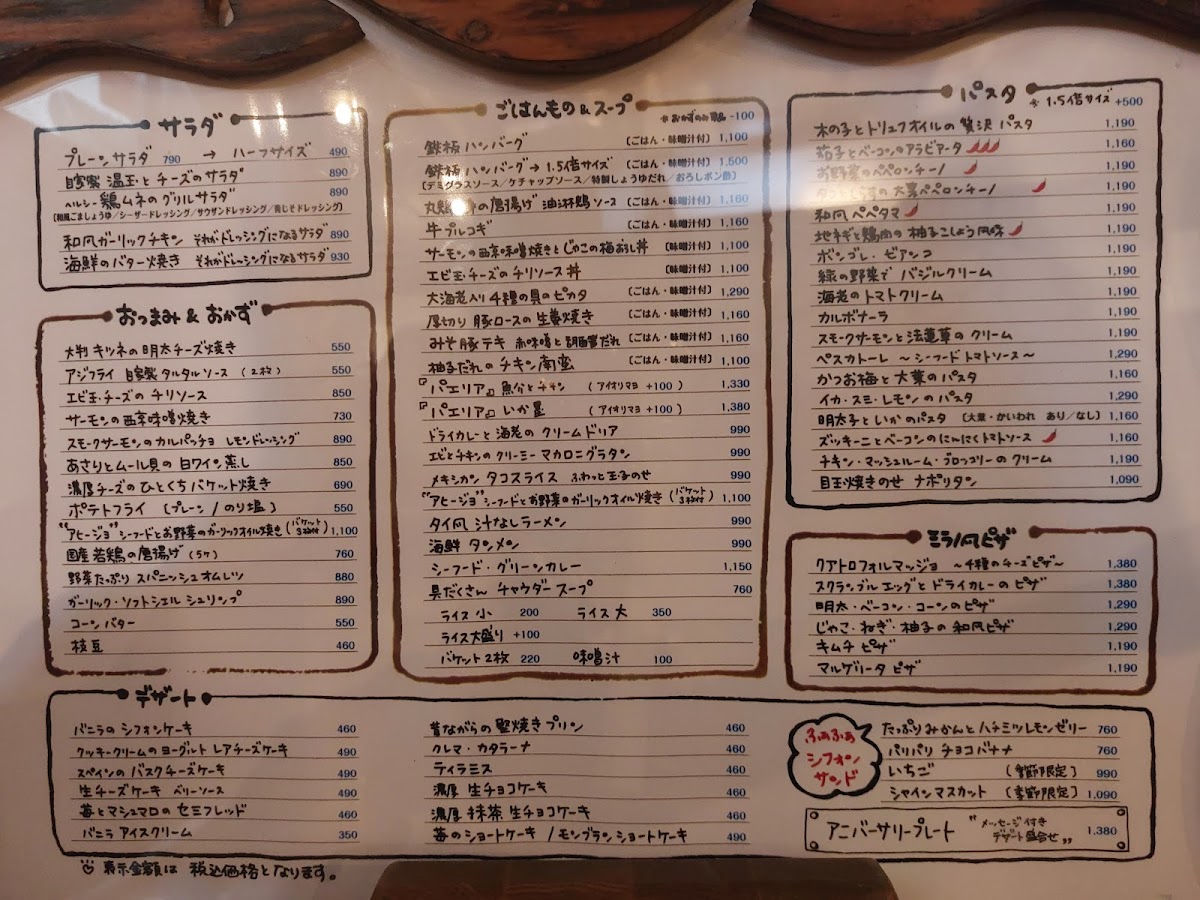 サラダ
プレーンサラダ 790 → ハーフサイズ 490
自家製 温玉とチーズのサラダ 890
ヘルシー 鶏ムネのグリルサラダ 890
(和風ごましょうゆ/シーザードレッシング/サウザンドレッシング/青じそドレッシング)
和風ガーリックチキン それがドレッシングになるサラダ 890
海鮮のバター焼き それがドレッシングになるサラダ 930
おつまみ & おかず
大判 キツネの明太チーズ焼き 550
アジフライ 自家製 タルタルソース (2枚) 550
エビ玉・チーズの チリソース 850
サーモンの西京味噌焼き 730
スモークサーモンのカルパッチョ レモンドレッシング 890
あさりとムール貝の 白ワイン蒸し 850
濃厚チーズのひとくちバケット焼き 690
ポテトフライ [プレーン / のり塩] 550
"アヒージョ" シーフードとお野菜のガーリックオイル焼き (バケット3枚付) 1,100
国産 若鶏の唐揚げ (5ケ) 760
野菜たっぷり スパニッシュオムレツ 880
ガーリック・ソフトシェル シュリンプ 890
コーンバター 550
枝豆 460
ごはんもの & スープ
※おかずのみ単品 -100
鉄板 ハンバーグ (ごはん・味噌汁付) 1,100
鉄板 ハンバーグ → 1.5倍サイズ (ごはん・味噌汁付) 1,500
[デミグラスソース/ケチャップソース/特製しょうゆだれ/おろしポン酢]
の唐揚げ 油淋鶏ソース (ごはん・味噌汁付) 1,160
牛プルコギ (ごはん・味噌汁付) 1,160
サーモンの西京味噌焼きとじゃこの梅おろし丼 (味噌汁付) 1,100
エビ玉・チーズの チリソース丼 (味噌汁付) 1,100
大海老入り 4種の具のピカタ (ごはん・味噌汁付) 1,290
厚切り 豚ロースの生姜焼き (ごはん・味噌汁付) 1,160
みそ豚テキ 赤味噌と胡麻醤だれ (ごはん・味噌汁付) 1,160
柚子だれの チキン南蛮 (ごはん・味噌汁付) 1,100
『パエリア』 魚介とチキン (アイオリマヨ +100) 1,330
『パエリア』 いか墨 (アイオリマヨ +100) 1,380
ドライカレーと 海老の クリームドリア 990
エビとチキンのクリーミー マカロニグラタン 990
メキシカン タコスライス ふわっと玉子のせ 990
"アヒージョ" シーフードとお野菜のガーリックオイル焼き (バケット3枚付) 1,100
タイ風 汁なしラーメン 990
海鮮 タンメン 990
シーフード・グリーンカレー 1,150
具だくさん チャウダースープ 760
ライス小 200 ライス大 350
ライス大盛り +100
バケット2枚 220 味噌汁 100
パスタ
※ 1.5倍サイズ +500
木の子とトリュフオイルの 贅沢 パスタ 1,190
茄子とベーコンのアラビアータ 1,160
お野菜の ペペロンチーノ 1,190
の大葉ペペロンチーノ 1,190
和風 ペペタマ 1,190
地ネギと鶏肉の 柚子こしょう風味 1,190
ボンゴレ・ビアンコ 1,190
緑の野菜で バジルクリーム 1,190
海老のトマトクリーム 1,190
カルボナーラ 1,190
スモークサーモンと 法蓮草の クリーム 1,190
ペスカトーレ ～シーフードトマトソース～ 1,290
かつお梅と 大葉の パスタ 1,160
イカ・スミ・レモンの パスタ 1,290
明太子と いかのパスタ [大葉・かいわれ あり/なし] 1,160
ズッキーニとベーコンのにんにくトマトソース 1,160
チキン・マッシュルーム・ブロッコリーの クリーム 1,190
目玉焼きのせ ナポリタン 1,090
ミラノ風ピザ
クアトロフォルマッジョ ～4種のチーズピザ～ 1,380
スクランブルエッグと ドライカレーの ピザ 1,380
明太・ベーコン・コーンの ピザ 1,290
じゃこ・ねぎ・柚子の 和風ピザ 1,290
キムチ ピザ 1,190
マルゲリータ ピザ 1,190
デザート
バニラの シフォンケーキ 460
クッキークリームのヨーグルト レアチーズケーキ 490
スペインの バスクチーズケーキ 490
生チーズケーキ ベリーソース 490
苺とマシュマロの セミフレッド 460
バニラ アイスクリーム 350
昔ながらの 堅焼きプリン 460
クレマ・カタラーナ 460
ティラミス 460
濃厚 生チョコケーキ 460
濃厚 抹茶 生チョコケーキ 460
苺のショートケーキ / モンブランショートケーキ 490
ふぁふぁ
シフォン
サンド
たっぷりみかんと ハチミツレモンゼリー 760
パリパリ チョコバナナ 760
いちご (季節限定) 990
シャインマスカット (季節限定) 1,090
アニバーサリープレート "メッセージ付き デザート盛合せ" 1,380
表示金額は 税込価格となります。